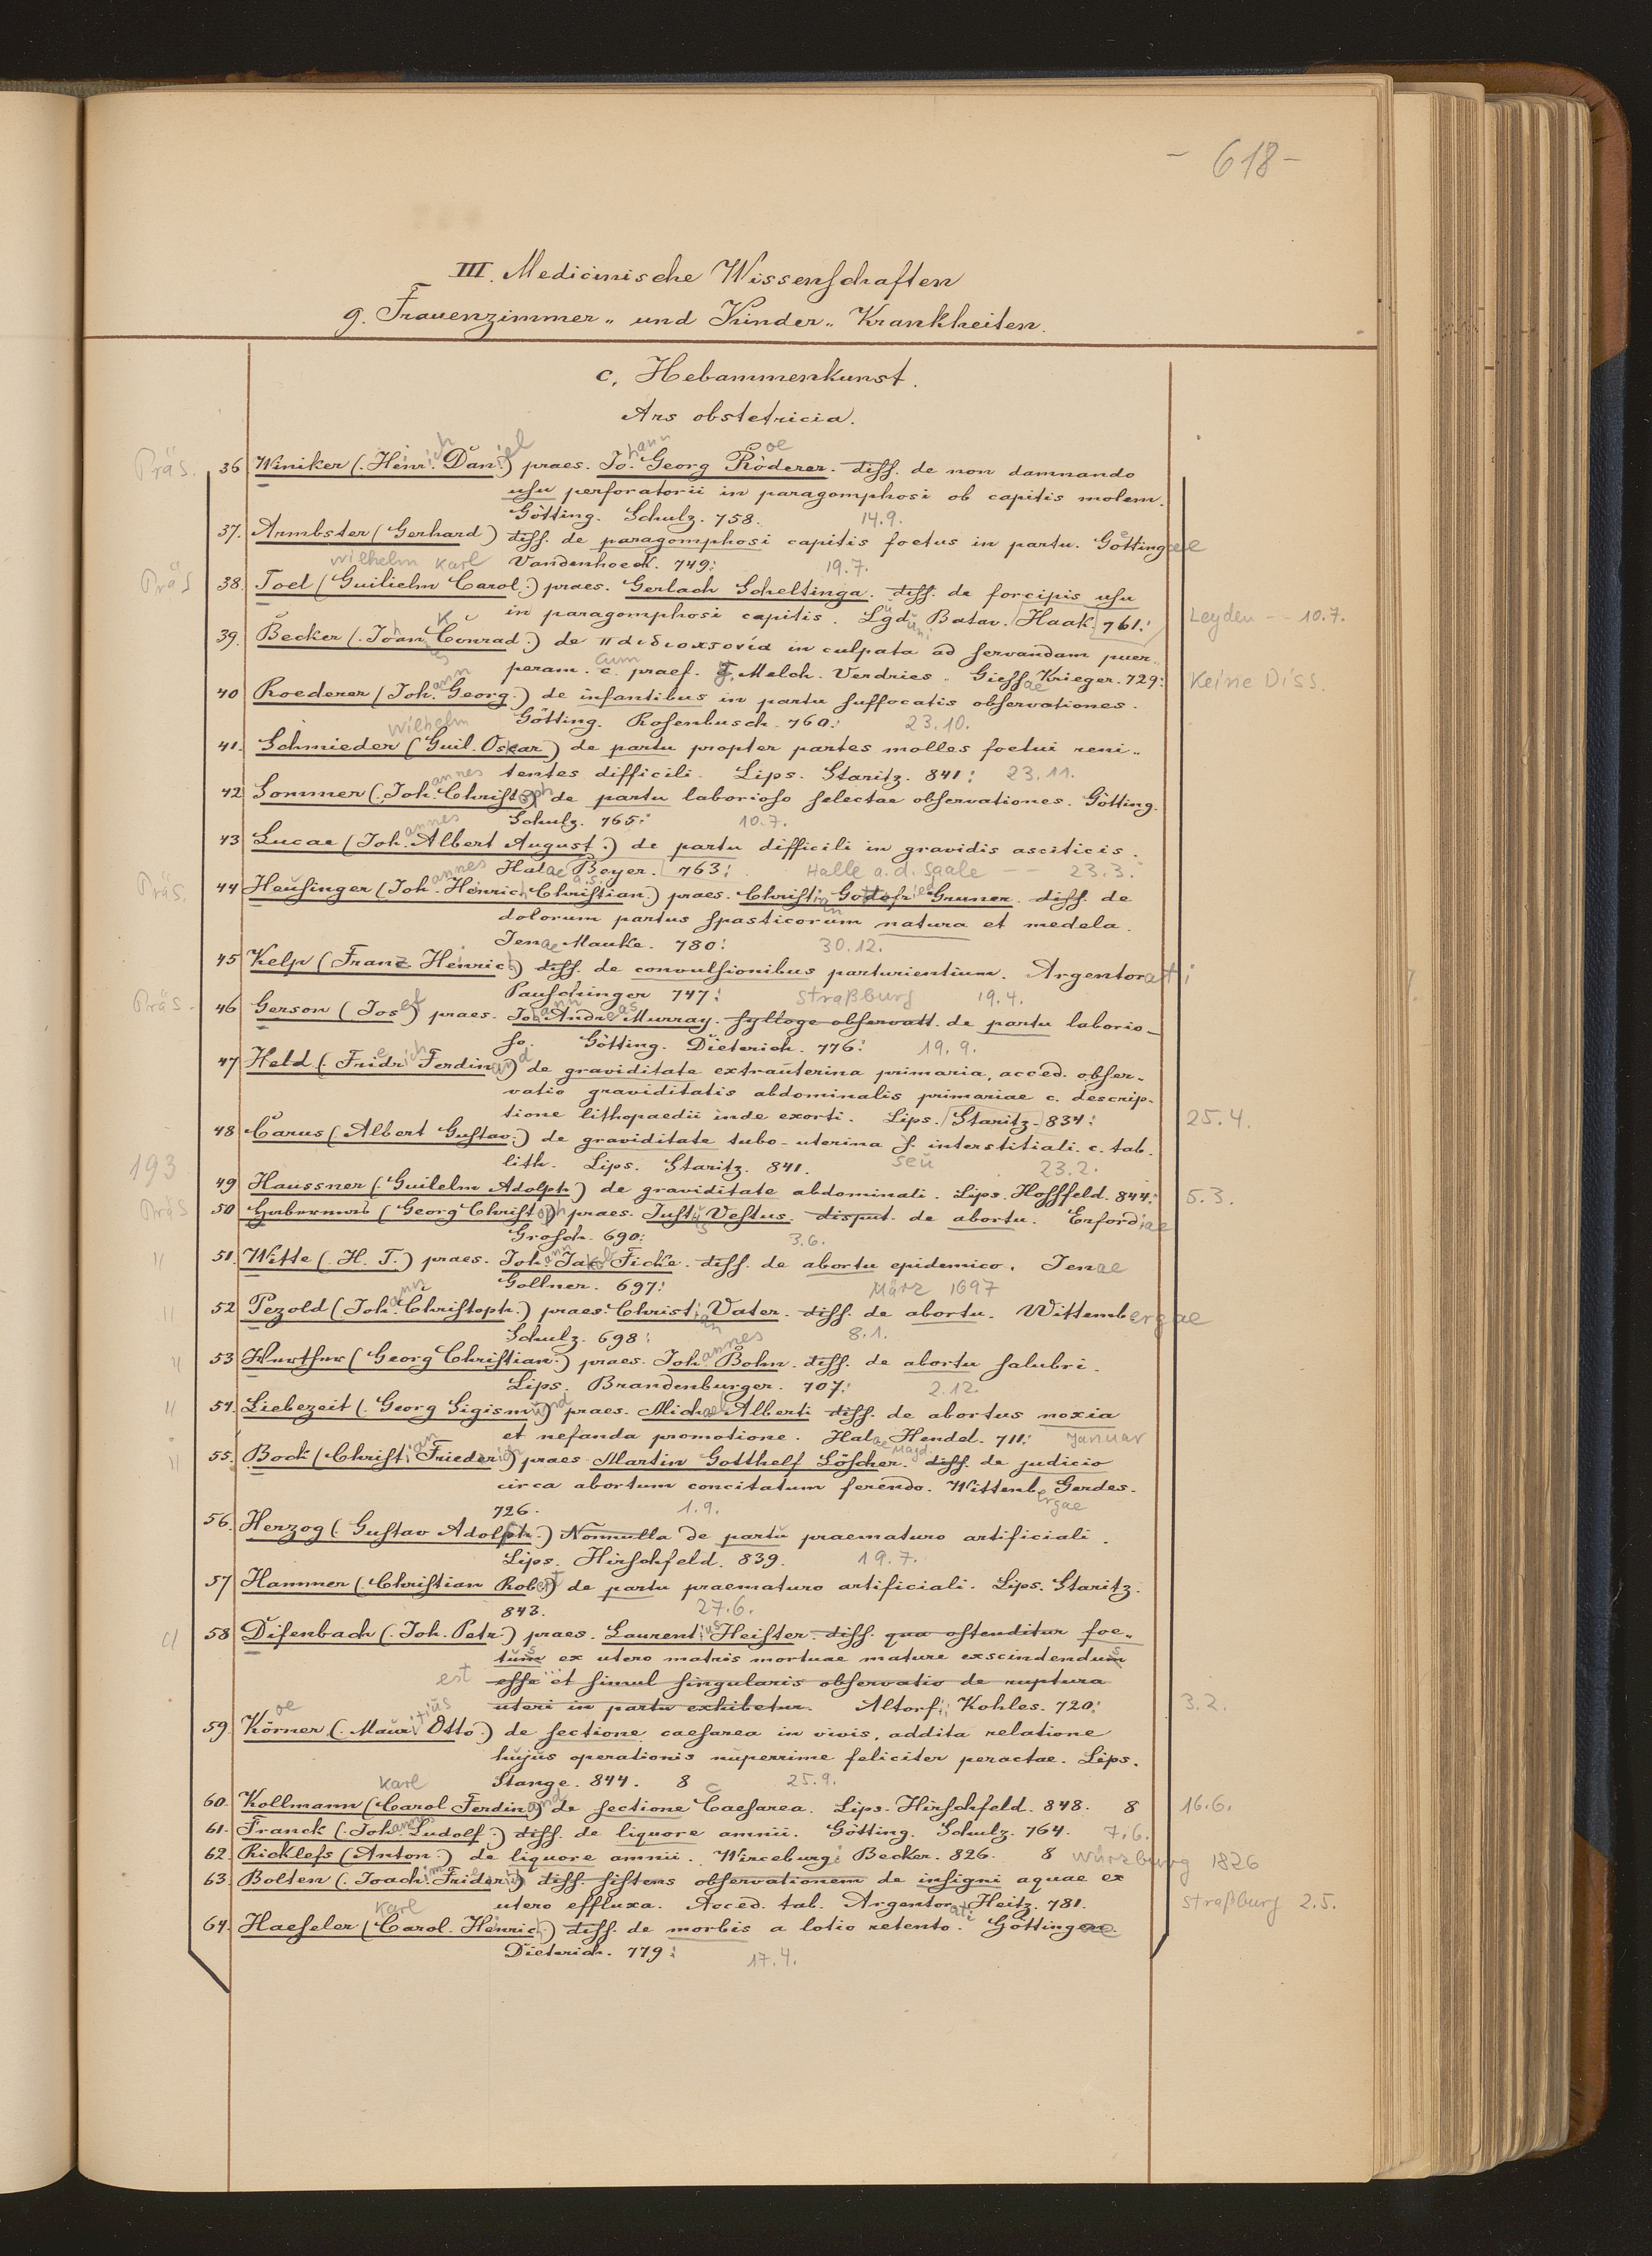 - 618 -
III. Medicinische Wissenschaften
g. Frauenzimmer- und Kinder- Krankheiten.
c, Hebammenkunst.
Ars obstetricia.
Präs. 36 Winiker (Heinrich Daniel) praes. Johann Georg Röderer. diss. de non damnando
usu perforatorii in paragomphosi ob capitis molem.
Götting. Schulz. 758. 14.9.
37. Armbster (Gerhard) diss. de paragomphosi capitis foetus in partu. Göttingae
Vandenhoeck. 749: 19.7.
Wilhelm Karl
Präs 38. Toel (Guilielm Carol.) praes. Gerlach Scheltinga. diss. de forcipis usu
in paragomphosi capitis. Lugduni Batav. Haak 761: Leyden -- 10.7.
39. Becker (Johannes Conrad) de in culpata ad servandam puer-
peram. c. cum praef. J. Melch. Verdries. Giessae Krieger. 729: Keine Diss.
40 Roederer (Johann Georg.) de infantibus in partu suffocatis observationes.
Götting. Rosenbusch. 760: 23.10.
Wilhelm
41. Schmieder (Guil. Oskar) de partu propter partes molles foetui reni-
tentes difficili. Lips. Staritz. 841: 23.11.
42 Sommer (Johannes Christoph) de partu laborioso selectae observationes. Götting.
Schulz. 765: 10.7.
43 Lucae (Johannes Albert August.) de partu difficili in gravidis asciticis.
Halae a.S. Beyer. 763: Halle a.d. Saale -- 23.3.
Präs. 44 Heusinger (Johannes Heinrich Christian) praes. Christian Gottfried Gruner. diss. de
dolorum partus spasticorum natura et medela.
Jenae Mauke. 780: 30.12.
45 Kelp (Franz Heinrich) diss. de convulsionibus parturientium. Argentorati
Pauschinger 747: Straßburg 19.4.
Präs. 46 Gerson (Josef) praes. Johann Andreas Murray. sylloge observatt. de partu laborio-
so. Götting. Dieterich. 776: 19.9.
47 Held (Friedrich Ferdinand) de graviditate extrauterina primaria, acced. obser-
vatio graviditatis abdominalis primariae c. descrip-
tione lithopaedii inde exorti. Lips. Staritz 834: 25.4.
48 Carus (Albert Gustav.) de graviditate tubo-uterina s. interstitiali. c. tab.
lith. Lips. Staritz. 841. seu 23.2.
193
49 Haussner (Guilelm Adolph) de graviditate abdominali. Lips. Hossfeld. 844: 5.3.
Präs 50 (Georg Christoph) praes. Justus Vestus. disput. de abortu. Erfordiae
Grosch. 690: 3.6.
" 51. Witte (H. T.) praes. Johann Jakob Ficke. diss. de abortu epidemico. Jenae
Gollner. 697: März 1697
" 52 Pezold (Johann Christoph.) praes. Christian Vater. diss. de abortu. Wittembergae
Schulz. 698: 8.1.
" 53 (Georg Christian.) praes. Johannes Bohn. diss. de abortu salubri.
Lips. Brandenburger. 707: 2.12.
" 54. Liebezeit (Georg Sigismund) praes. Michael Alberti diss. de abortus noxia
et nefanda promotione. Halae Magd. Hendel. 711: Januar
" 55. Bock (Christian Friederich) praes. Martin Gotthelf Löscher. diss. de judicio
circa abortum concitatum ferendo. Wittenbergae Gerdes.
726. 1.9.
56. Herzog (Gustav Adolph.) Nonnulla de partu praematuro artificiali.
Lips. Hirschfeld. 839. 19.7.
57 Hammer (Christian Robert) de partu praematuro artificiali. Lips. Staritz.
843. 27.6.
58 Difenbach (Joh. Petr.) praes. Laurentius Heister. diss. qua ostenditur foe-
tum ex utero matris mortuae mature exscindendum
est esse et simul singularis observatio de ruptura
uteri in partu exhibetur. Altorfii Kohles. 720: 3.2.
59. Körner (Mauritius Otto) de sectione caesarea in vivis, addita relatione
hujus operationis nuperrime feliciter peractae. Lips.
Stange. 844. 8 25.9.
Karl
60. Kollmann (Carol Ferdinand) de sectione Caesarea. Lips. Hirschfeld. 848. 8 16.6.
61. Franck (Johann Ludolf.) diss. de liquore amnii. Götting. Schulz. 764. 7.6.
62. Ricklefs (Anton.) de liquore amnii. Wirceburgi Becker. 826. 8 Würzburg 1826
63. Bolten (Joachim Friderich) diss. sistens observationem de insigni aquae ex
utero effluxa. Acced. tab. Argentorati Heitz. 781. Straßburg 2.5.
Karl
64. Haeseler (Carol. Heinrich) diss. de morbis a lotio retento. Göttingae
Dieterich. 779: 17.4.